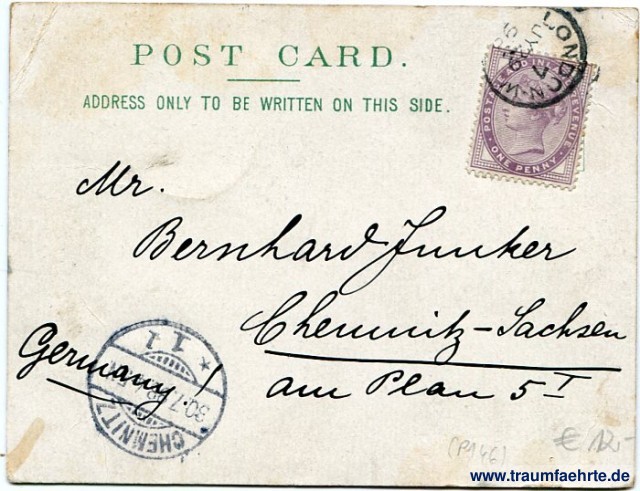 POST CARD.
ADDRESS ONLY TO BE WRITTEN ON THIS SIDE.
LONDON·W
POSTAGE AND INLAND REVENUE
ONE PENNY
Mr.
Bernhard Junker
Chemnitz-Sachsen
Germany!
am Plan 5 I
CHEMNITZ
(P146)
€ 12,-
www.traumfaehrte.de